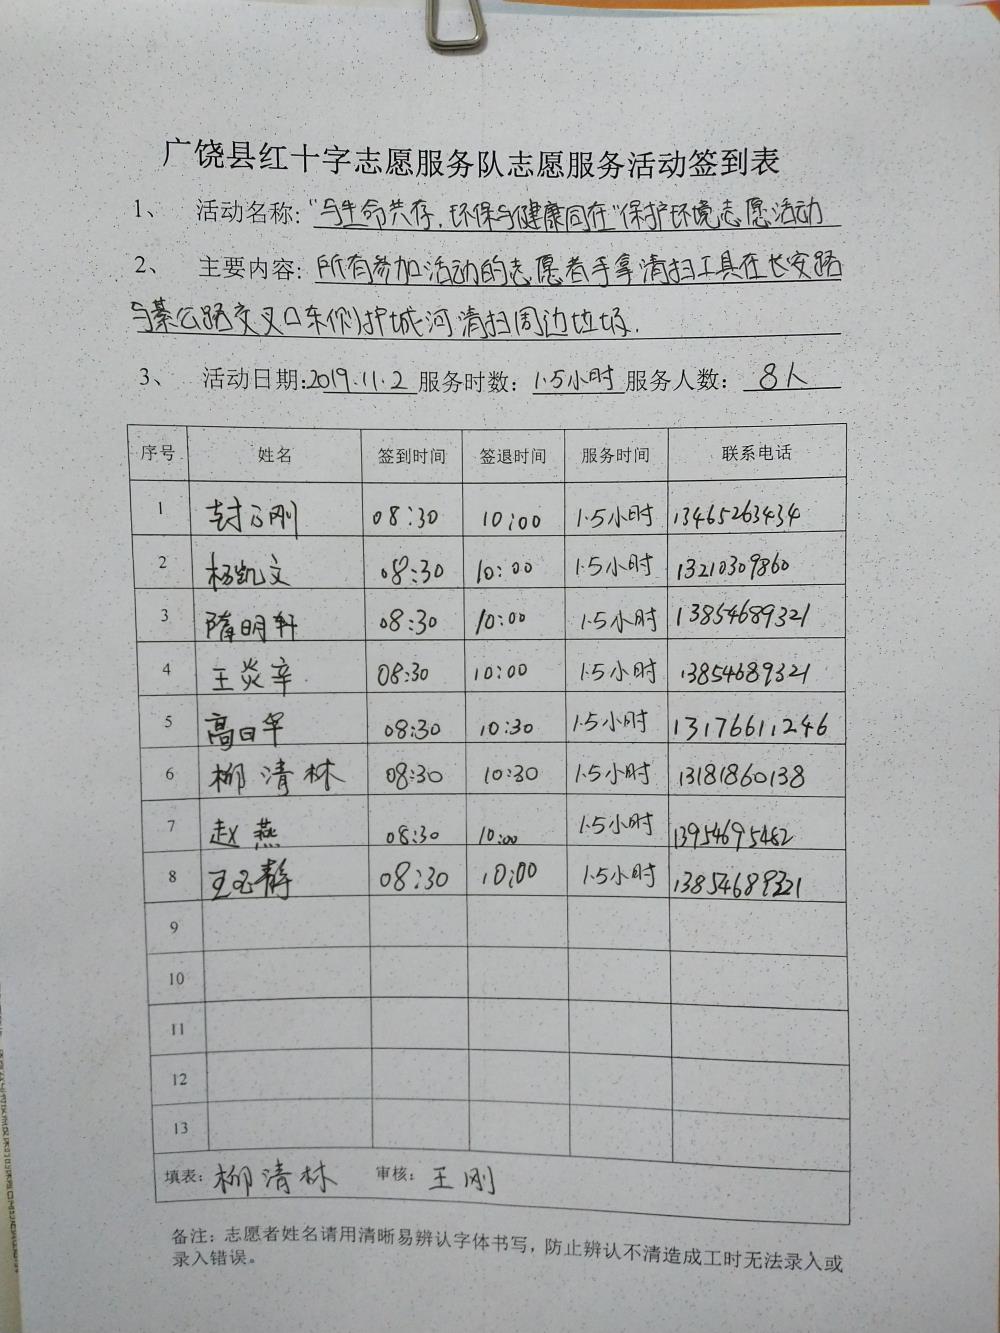 广饶县红十字志愿服务队志愿服务活动签到表
1、 活动名称: "与生命共存,环保与健康同在"保护环境志愿活动
2、 主要内容: 所有参加活动的志愿者手拿清扫工具在长安路
与綦公路交叉口东侧护城河清扫周边垃圾.
3、 活动日期: 2019.11.2 服务时数: 1.5小时 服务人数: 8人
序号 姓名 签到时间 签退时间 服务时间 联系电话
1 封乃刚 08:30 10:00 1.5小时 13465263434
2 杨凯文 08:30 10:00 1.5小时 13210309860
3 隋明轩 08:30 10:00 1.5小时 13854689321
4 王炎辛 08:30 10:00 1.5小时 13854689321
5 高日华 08:30 10:30 1.5小时 13176611246
6 柳清林 08:30 10:30 1.5小时 13181860138
7 赵燕 08:30 10:00 1.5小时 13954695482
8 王玉静 08:30 10:00 1.5小时 13854689321
9
10
11
12
13
填表: 柳清林 审核: 王刚
备注: 志愿者姓名请用清晰易辨认字体书写,防止辨认不清造成工时无法录入或
录入错误。